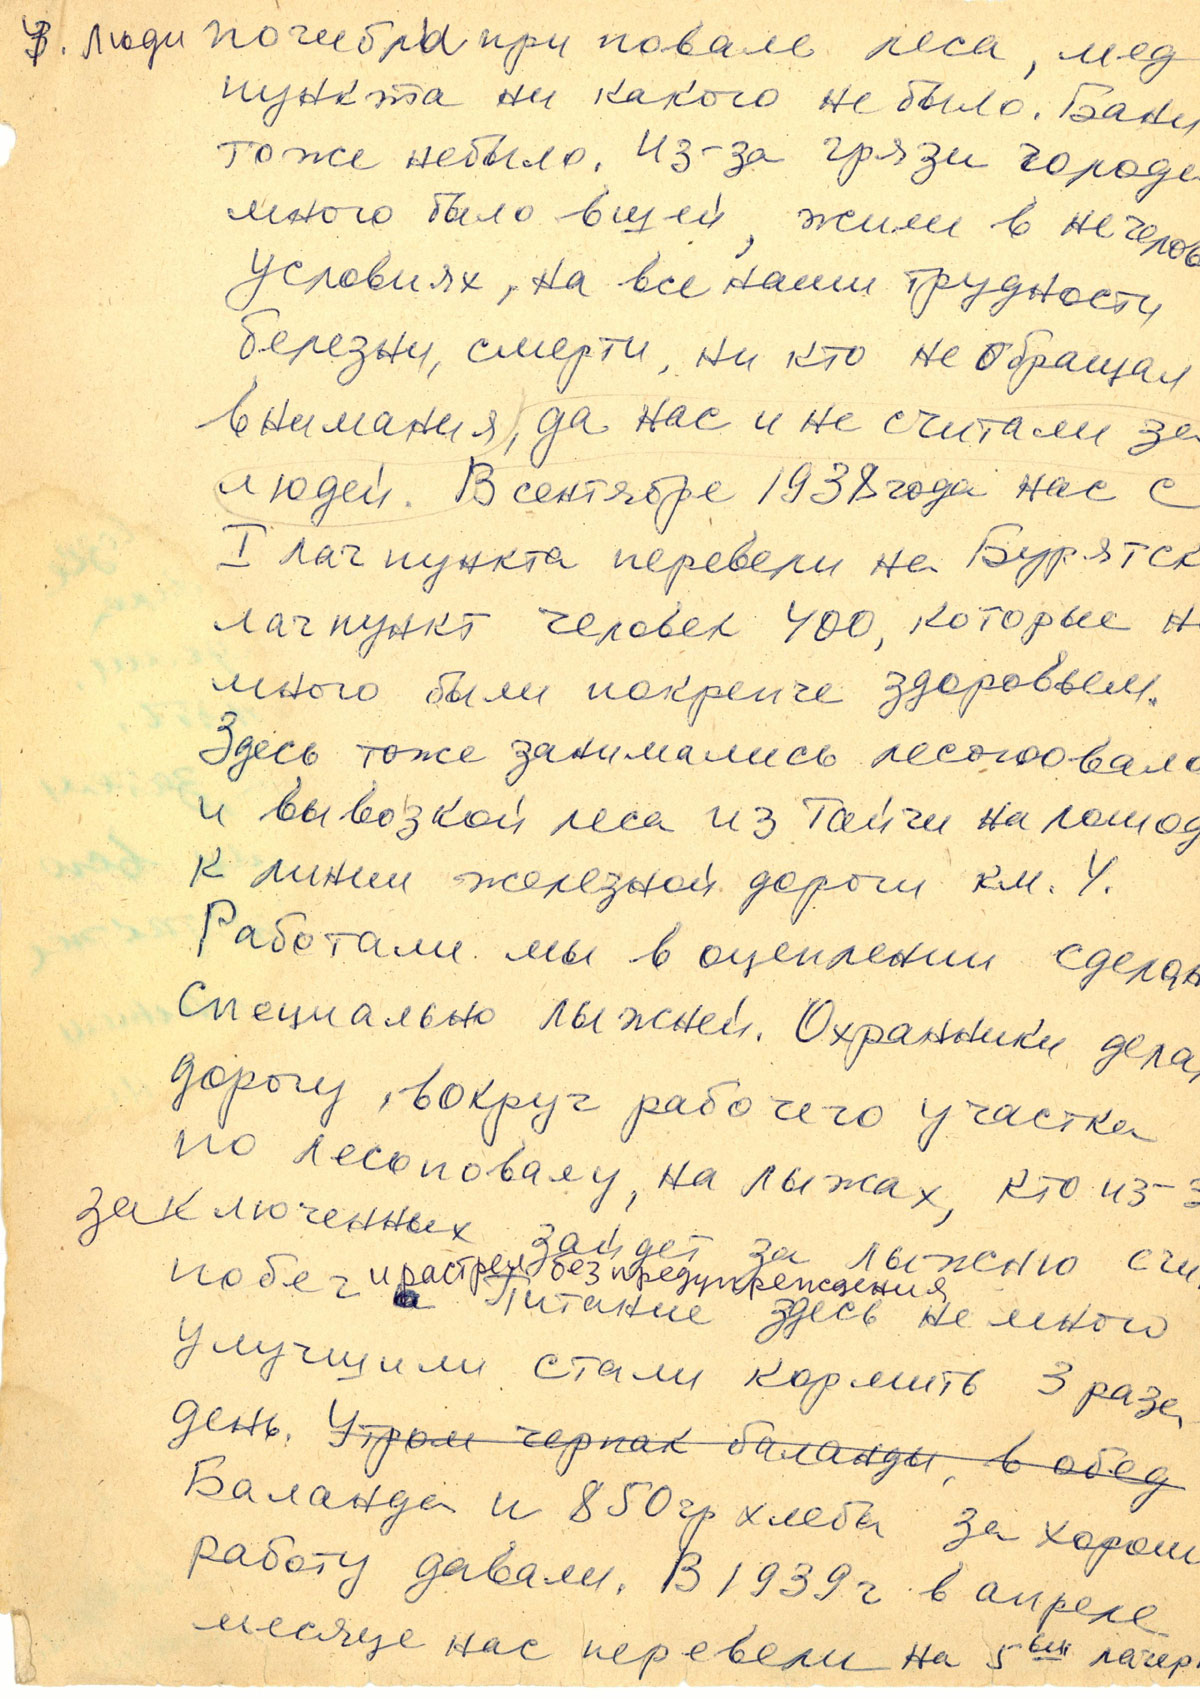 Люди погибри при повале леса, мед
пункта ни какого не было. Бани
тоже небыло. Из-за грязи
много было вшей, жили в нечелов
условиях, на все наши трудности
березни, смерти, ни кто не обращал
внимания, да нас и не считали за
людей. В сентябре 1938 года нас с
I лаг пункта перевели на Бурятск
лагпункт человек 400, которые не
много были покрепче здоровьем.
Здесь тоже занимались
и вывозкой леса из Тайги на лошад
к линии железной дороги км. 4.
Работали мы в оцеплении сделан
специально лыжней. Охранники дела
дорогу, вокруг рабочего участка
по лесоповалу, на лыжах, кто из-з
заключенных зайдет за лыжню счи
побег и растрел без предупреждения
Питание здесь немного
улучшили стали кормить 3 раза
день. Утром черпак баланды, в обед
Баланда и 850 гр хлеба за хорош
работу давали. В 1939 г в апреле
месяце нас перевели на 5вый лагер